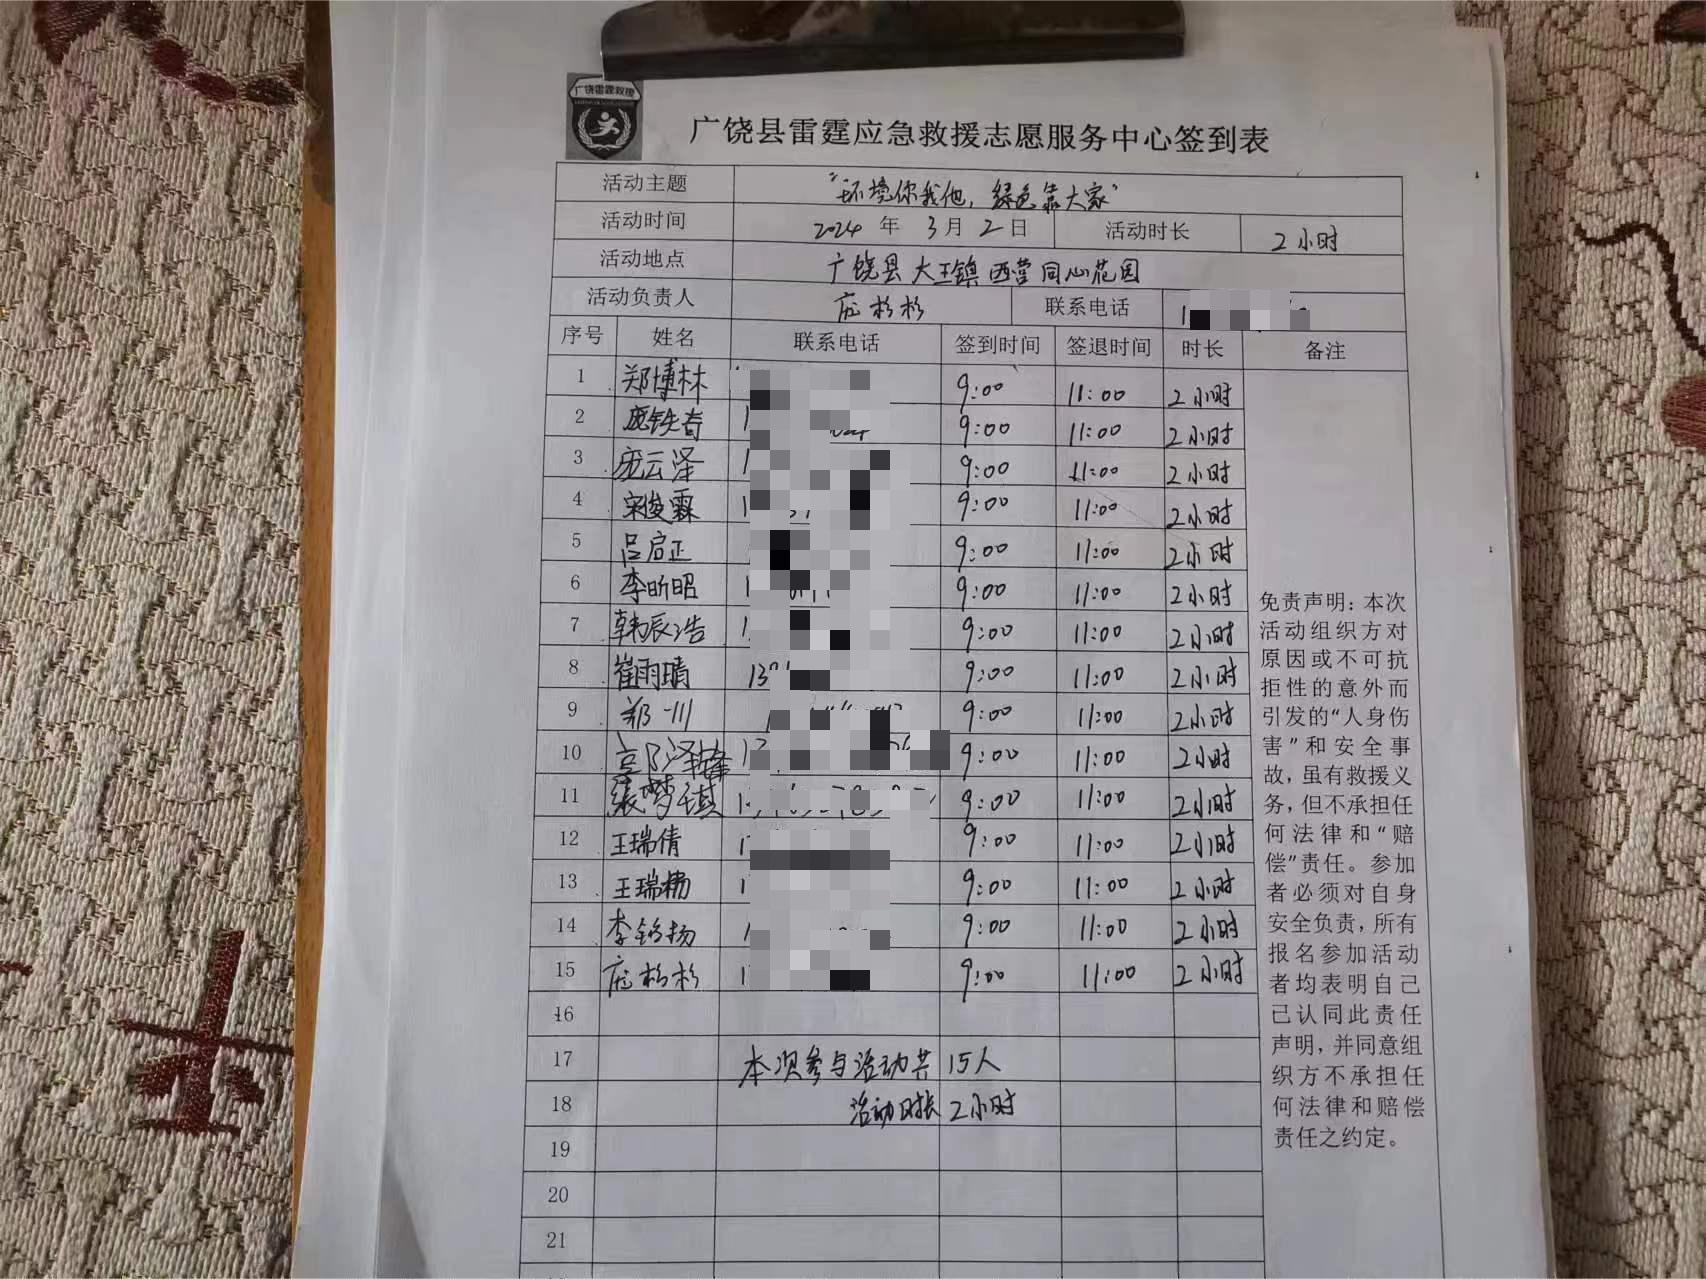 广饶雷霆救援
广饶县雷霆应急救援志愿服务中心签到表
活动主题 "环境你我他，绿色靠大家"
活动时间 2024 年 3 月 2 日 活动时长 2小时
活动地点 广饶县 大王镇 西营 同心花园
活动负责人 庞杉杉 联系电话
序号 姓名 联系电话 签到时间 签退时间 时长 备注
1 郑博林 9:00 11:00 2小时
2 庞铁奇 9:00 11:00 2小时
3 庞云泽 9:00 11:00 2小时
4 宋俊霖 9:00 11:00 2小时
5 吕启正 9:00 11:00 2小时
6 李昕昭 9:00 11:00 2小时
7 韩辰浩 9:00 11:00 2小时
8 崔雨晴 9:00 11:00 2小时
9 郑一川 9:00 11:00 2小时
10 9:00 11:00 2小时
11 张梦琪 9:00 11:00 2小时
12 王瑞倩 9:00 11:00 2小时
13 王瑞楠 9:00 11:00 2小时
14 李铭扬 9:00 11:00 2小时
15 庞杉杉 9:00 11:00 2小时
16
17 本次参与活动共 15人
18 活动时长 2小时
19
20
21
免责声明：本次
活动组织方对
原因或不可抗
拒性的意外而
引发的“人身伤
害”和安全事
故，虽有救援义
务，但不承担任
何法律和“赔
偿”责任。参加
者必须对自身
安全负责，所有
报名参加活动
者均表明自己
己认同此责任
声明，并同意组
织方不承担任
何法律和赔偿
责任之约定。